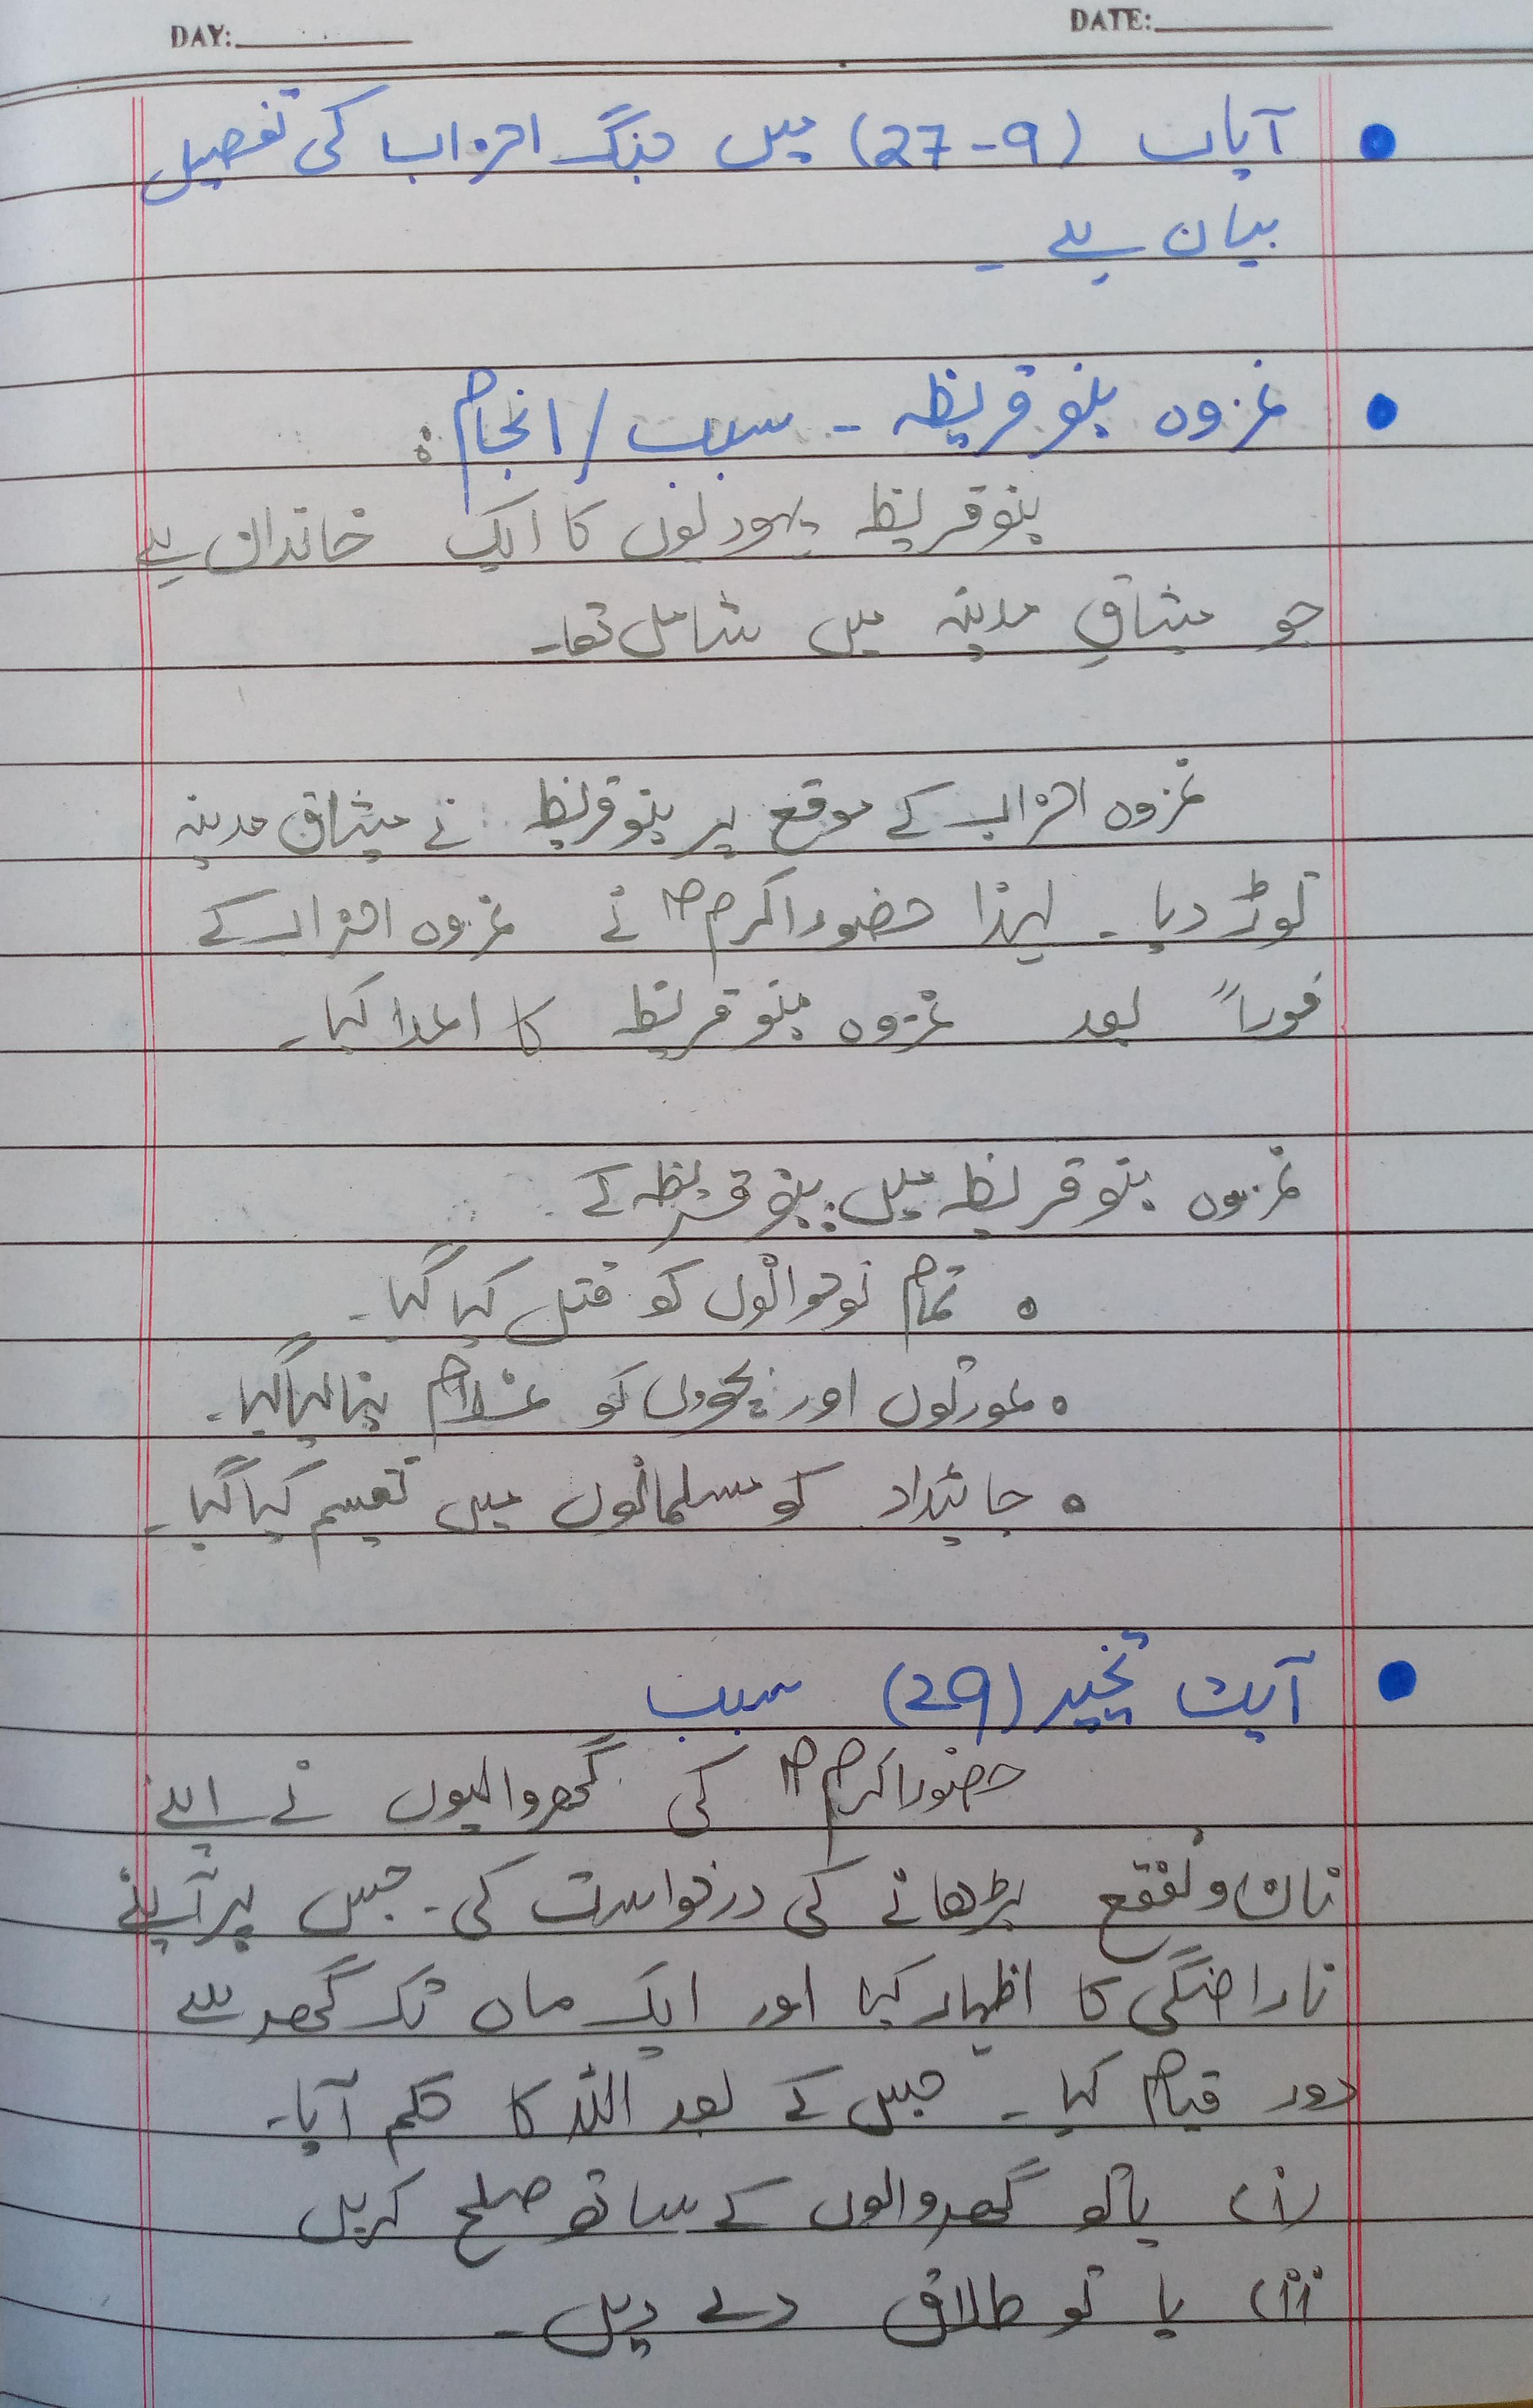 DAY:
DATE:
• آیات (9-27) میں جنگ احزاب کی تفصیل
بیان ہے۔
• غزوہ بنو قریظہ - سبب / انجام:
بنو قریظہ یہودیوں کا ایک خاندان ہے
جو میثاقِ مدینہ میں شامل تھا۔
غزوہ احزاب کے موقع پر بنو قریظہ نے میثاق مدینہ
توڑ دیا۔ لہذا حضور اکرم ؐ نے غزوہ احزاب کے
فوراً بعد غزوہ بنو قریظہ کا کیا۔
غزوہ بنو قریظہ میں بنو قریظہ کے
• تمام نوجوانوں کو قتل کیا گیا۔
• عورتوں اور بچوں کو غلام بنا لیا گیا۔
• جائیداد کو مسلمانوں میں تقسیم کیا گیا۔
• آیت تخییر (29) سبب
حضور اکرم ؐ کی گھر والیوں نے اپنے
نان و نفقع بڑھانے کی درخواست کی۔ جس پر آپ نے
ناراضگی کا اظہار کیا اور ایک ماہ تک گھر سے
دور قیام کیا۔ جس کے بعد اللہ کا حکم آیا۔
(i) یا تو گھر والوں کے ساتھ صلح کریں
(ii) یا تو طلاق دے دیں۔